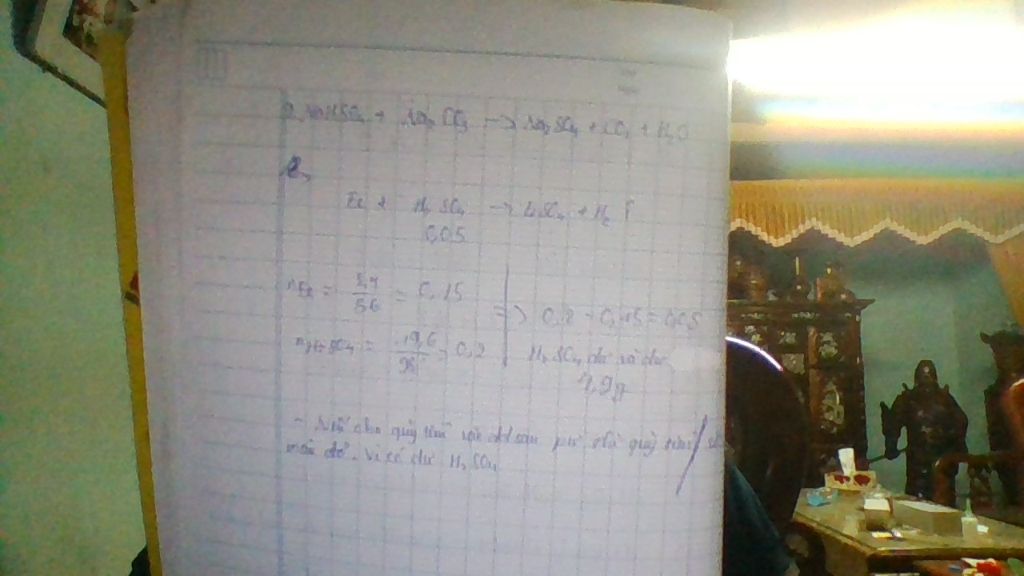 2 NaHSO4 + Na2CO3 → Na2SO4 + CO2 + H2O
2,
Fe + H2SO4 → FeSO4 + H2 ↑
0,05
nFe = 8,4/56 = 0,15
=> 0,2 - 0,15 = 0,05
nH2SO4 = 19,6/98 = 0,2
H2SO4 dư và dư
4,9g
- Nếu cho quỳ tím vào dd sau pư thì quỳ tím
màu đỏ. Vì có dư H2SO4